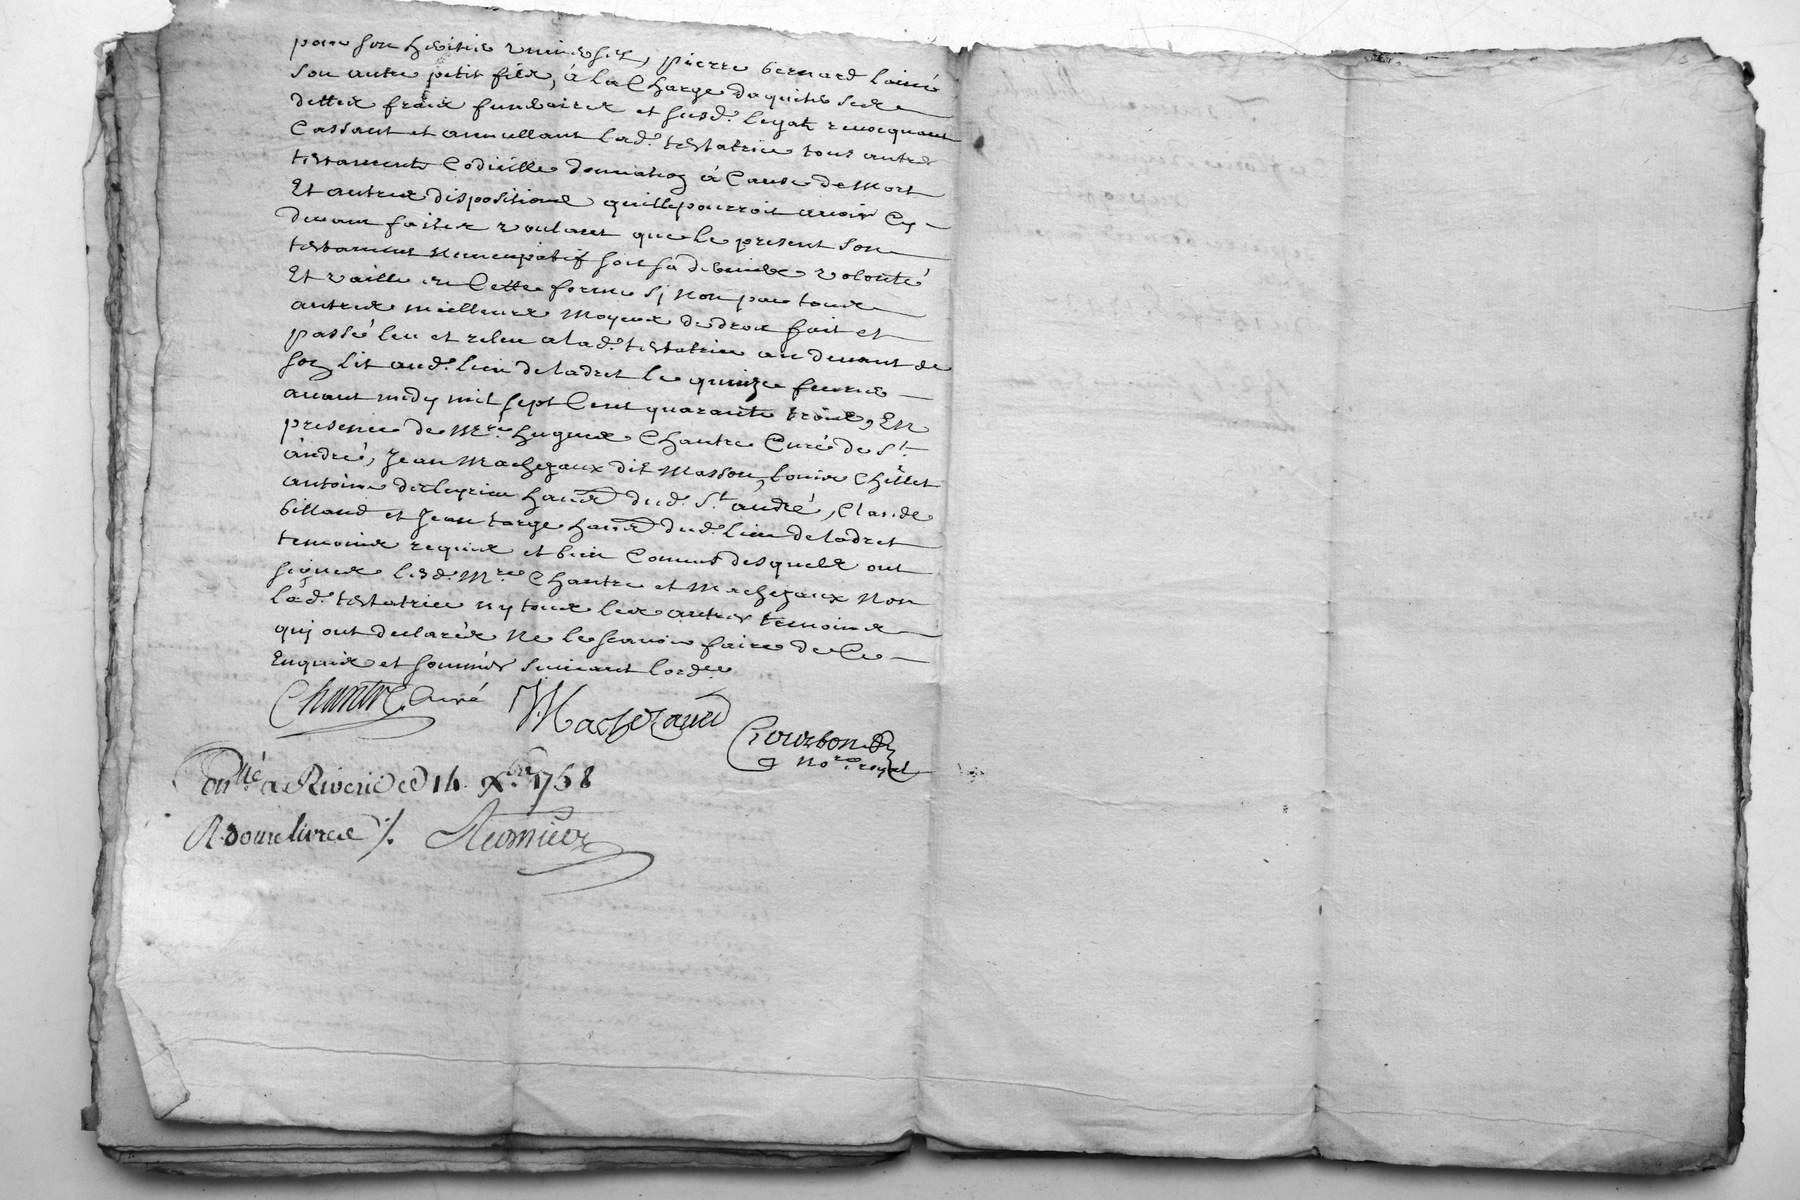 pour son heritier universel, pierre bernard laisné
son autre petit fils, à la Charge daquiter ses
dettes fraix funeraires et susd. legats revocquant
Cassant et annullant lad. testatrice tous autres
testaments Codicille donnation à Cause de Mort
Et autres dispositions quelle pourroit avoir Cy
devant faites voulant que le present son
testament nuncupatif soit sa derniere volonté
Et vaille en Cette forme sy non par tous
autres meilleurs Moyens de droit fait et
passé leu et releu a lad. testatrice au devant de
son Lit aud. lieu de ladret le quinze fevrier
avant midy mil sept Cent quarante trois, En
presence de Mre. hugues Chantre Curé de St.
andré, Jean Machezaux dit Masson, louis Chillet
antoine habts. dud. St. andré, Claude
billaud et Jean targe habts. dud. lieu de ladret
temoins requis et bien Connus desquels ont
signes lesd. Mre. Chantre et Machezaux Non
lad. testatrice ny tous les autres temoins
quy ont declarés Ne le sçavoir faire de Ce
Enquis et sommés suivant lorde.
Chantre. Curé Machezaud
Courbon
nore. royal
Conllé a Riverie ce 14. Xbre. 1758
R. douze livres ./.